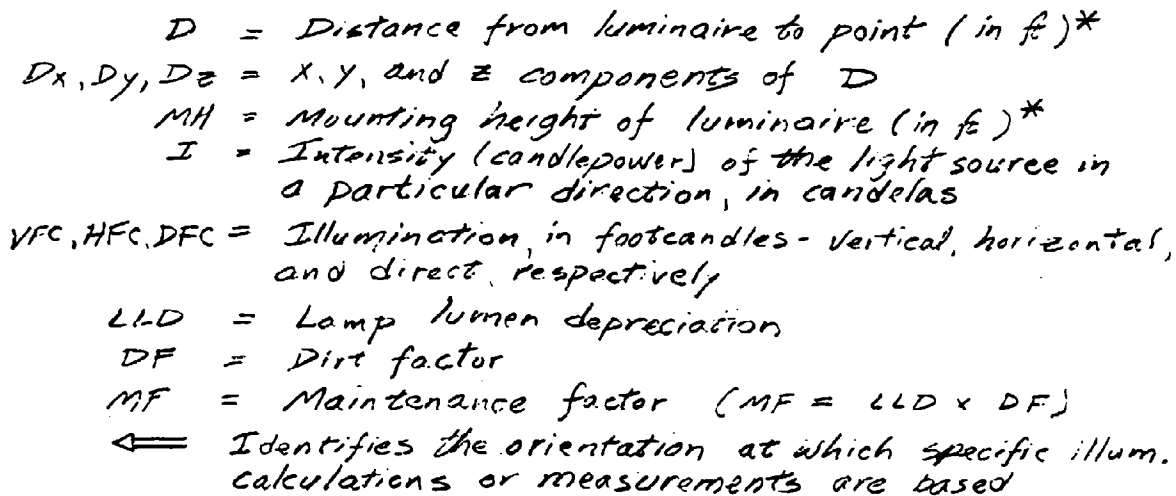 D = Distance from luminaire to point (in ft)*
Dx, Dy, Dz = X, Y, and Z components of D
MH = Mounting height of luminaire (in ft)*
I = Intensity (candlepower) of the light source in
a particular direction, in candelas
VFC, HFC, DFC = Illumination, in footcandles - vertical, horizontal,
and direct, respectively
LLD = Lamp lumen depreciation
DF = Dirt factor
MF = Maintenance factor (MF = LLD x DF)
⇐ Identifies the orientation at which specific illum.
calculations or measurements are based